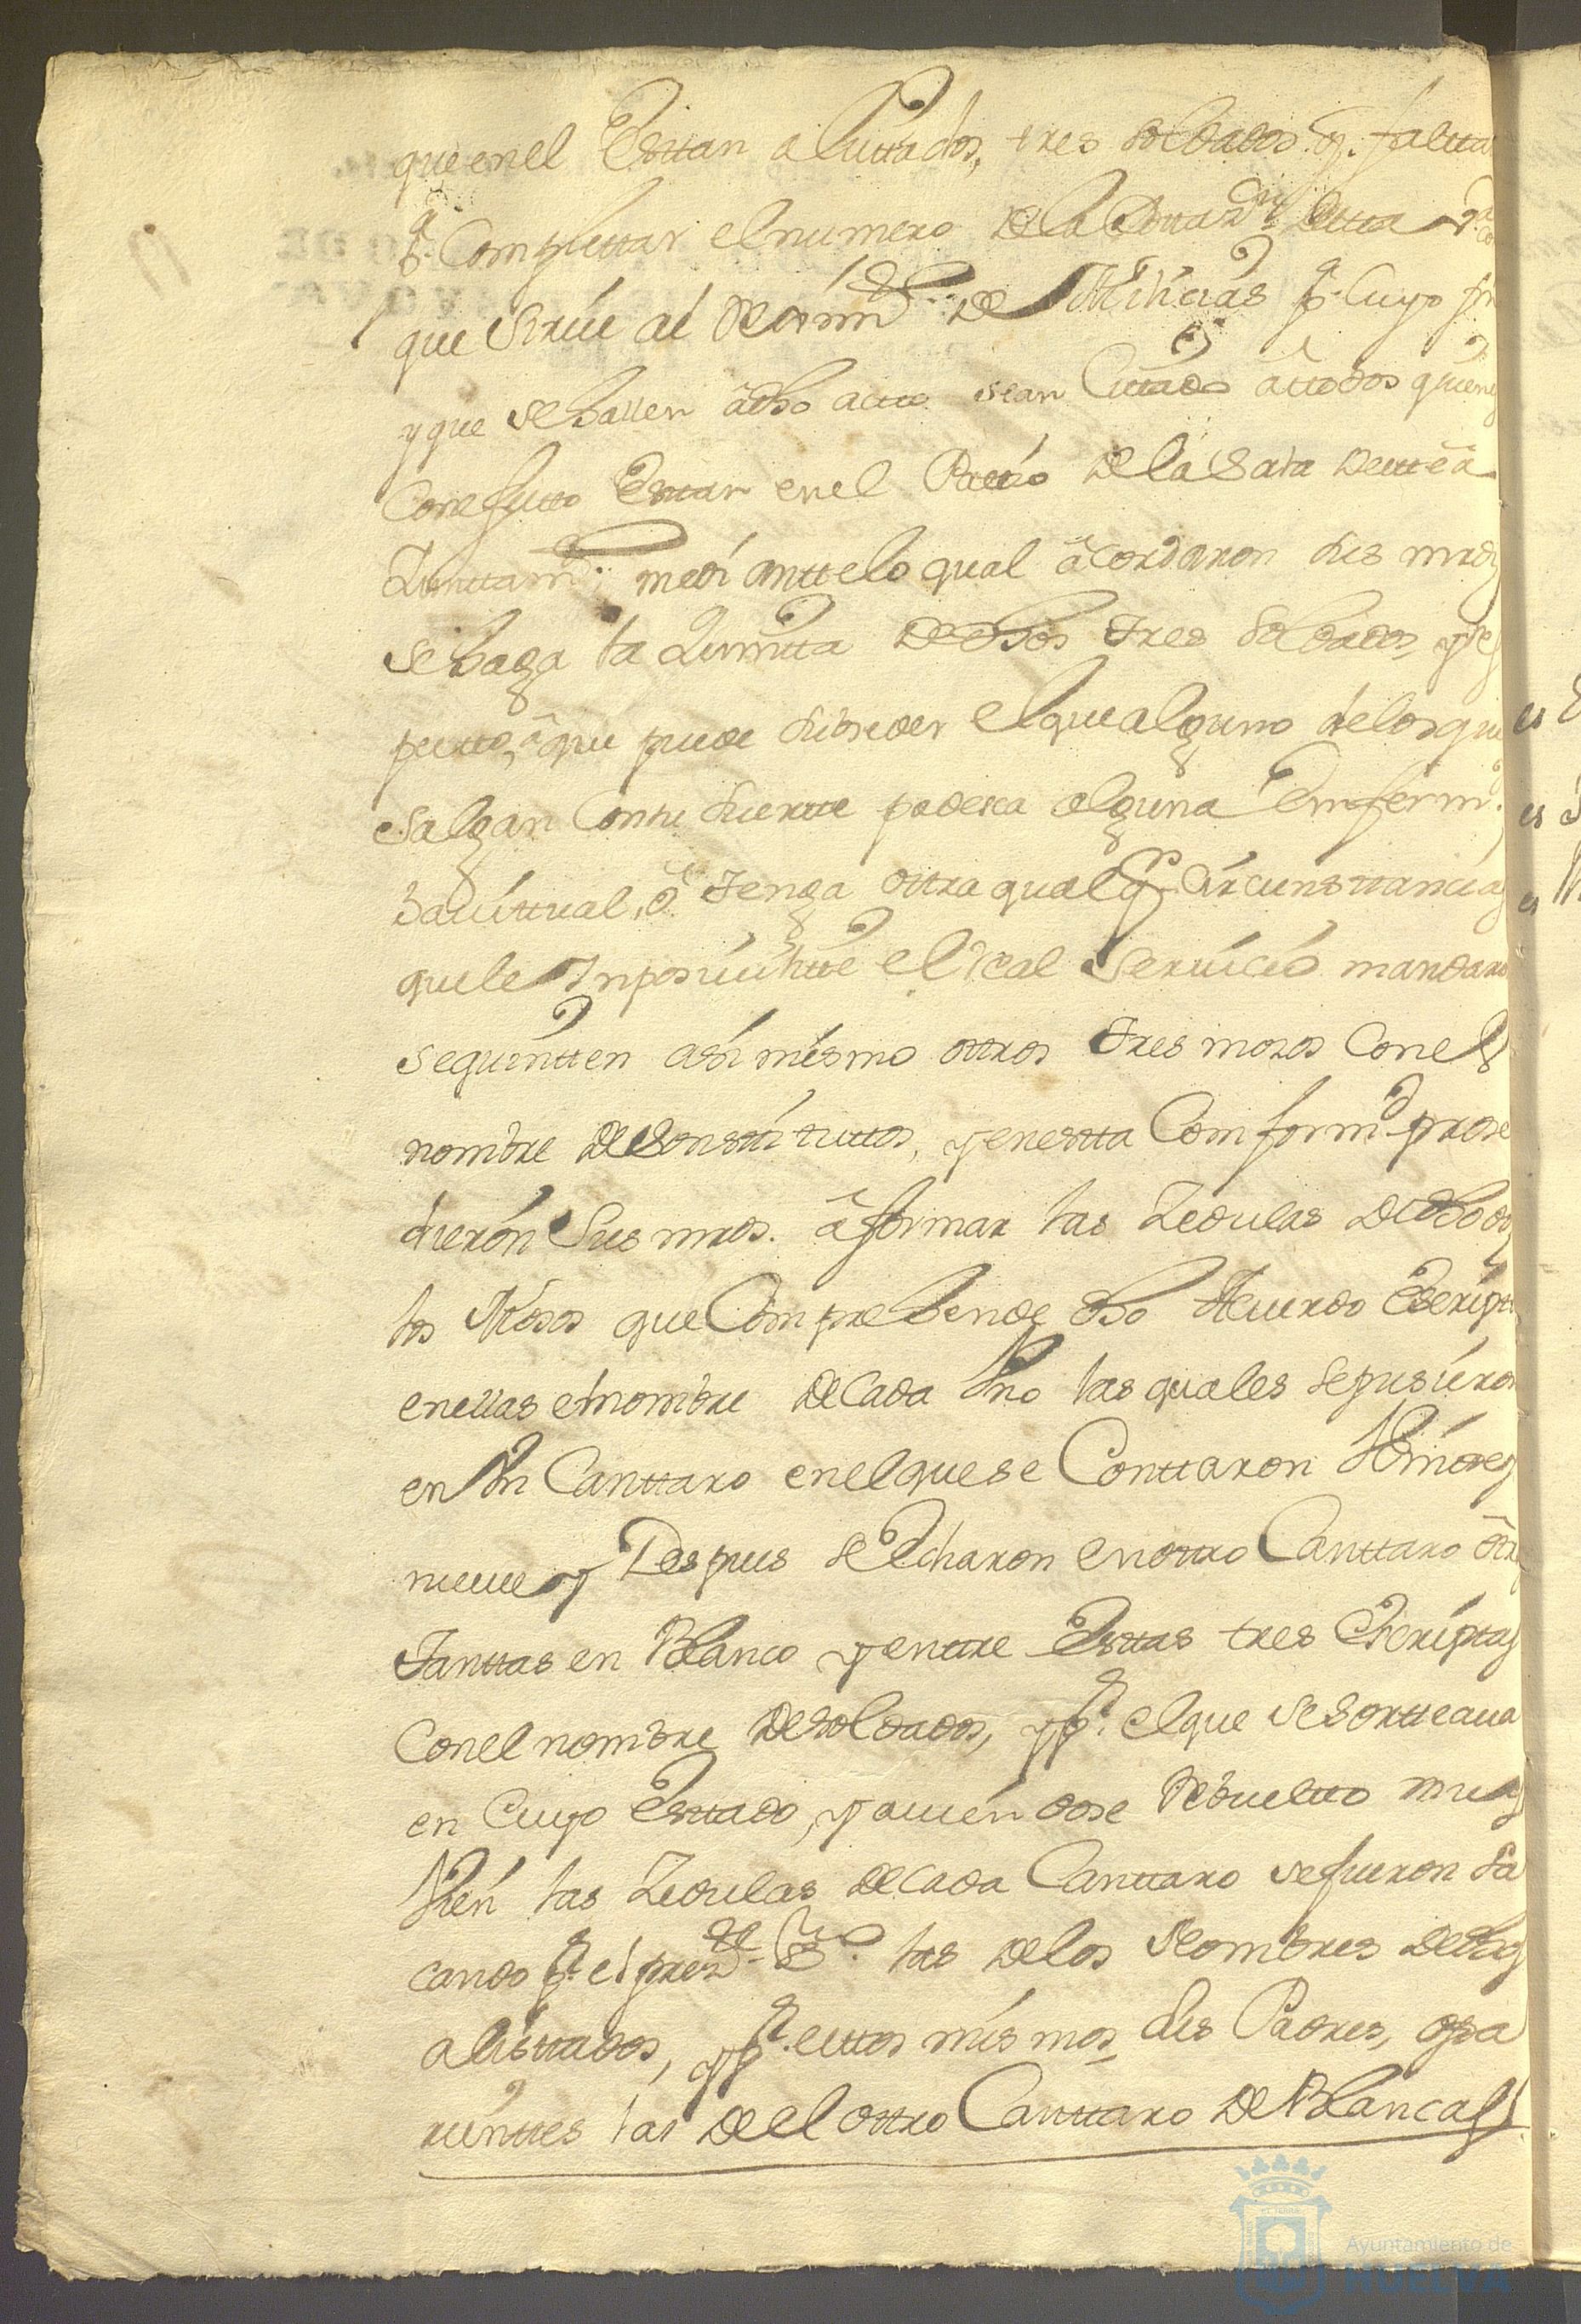 que en el Esttan alisttados, tres soldados q. faltta
pª. Complettar el numero de la Esquadrª. desta vª
que sirue al Reximto. de Milicias pª. Cuyo fin
y que se hallen â dho actto sean Cittados â ttodos quienes
Con efectto Esttan en el Pattio de la Sala deestte â
Iunttamto. medianttelo qual âcordaron sus mrds
se haga la Quintta de dhos tres Soldados, y res
pectto, â que puede subseder el que alguno delos que
salgan Con su Suertte padesca alguna Emfermd.
havittual, ô tenga ottra qualqra. Circunsttancia
que le Inposiuilitte el Real Seruicio mandaro
se quintten asi mismo ottros tres mosos Con el
nombre de Sonstituttos, y en estta Comformd. prose
dieron Sus mrds. â formar las Zedulas de dhos
los Mosos que Comprehende dho Acuerdo Escript
en ellas el nombre de Cada Vno las quales se pusieron
en Vn Canttaro en el que se Conttaron
nueue y Despues se Echaron en ottro Canttaro ôtr
Tanttas en Blanco y enttre Esttas tres Escriptas
Con el nombre de Soldados, y pª. el que se Sortteaua
en Cuyo Esttado, y auiendose Rebueltto muy
Vien las Zedulas de Cada Canttaro se fueron Sa
cando pr. el presste. Essno. las de los Nombres de los
alisttados, y pr. esttos mismos, sus Padres, o pa
rienttes las de el ottro Canttaro de Blancas
Ayuntamiento de
HUELVA